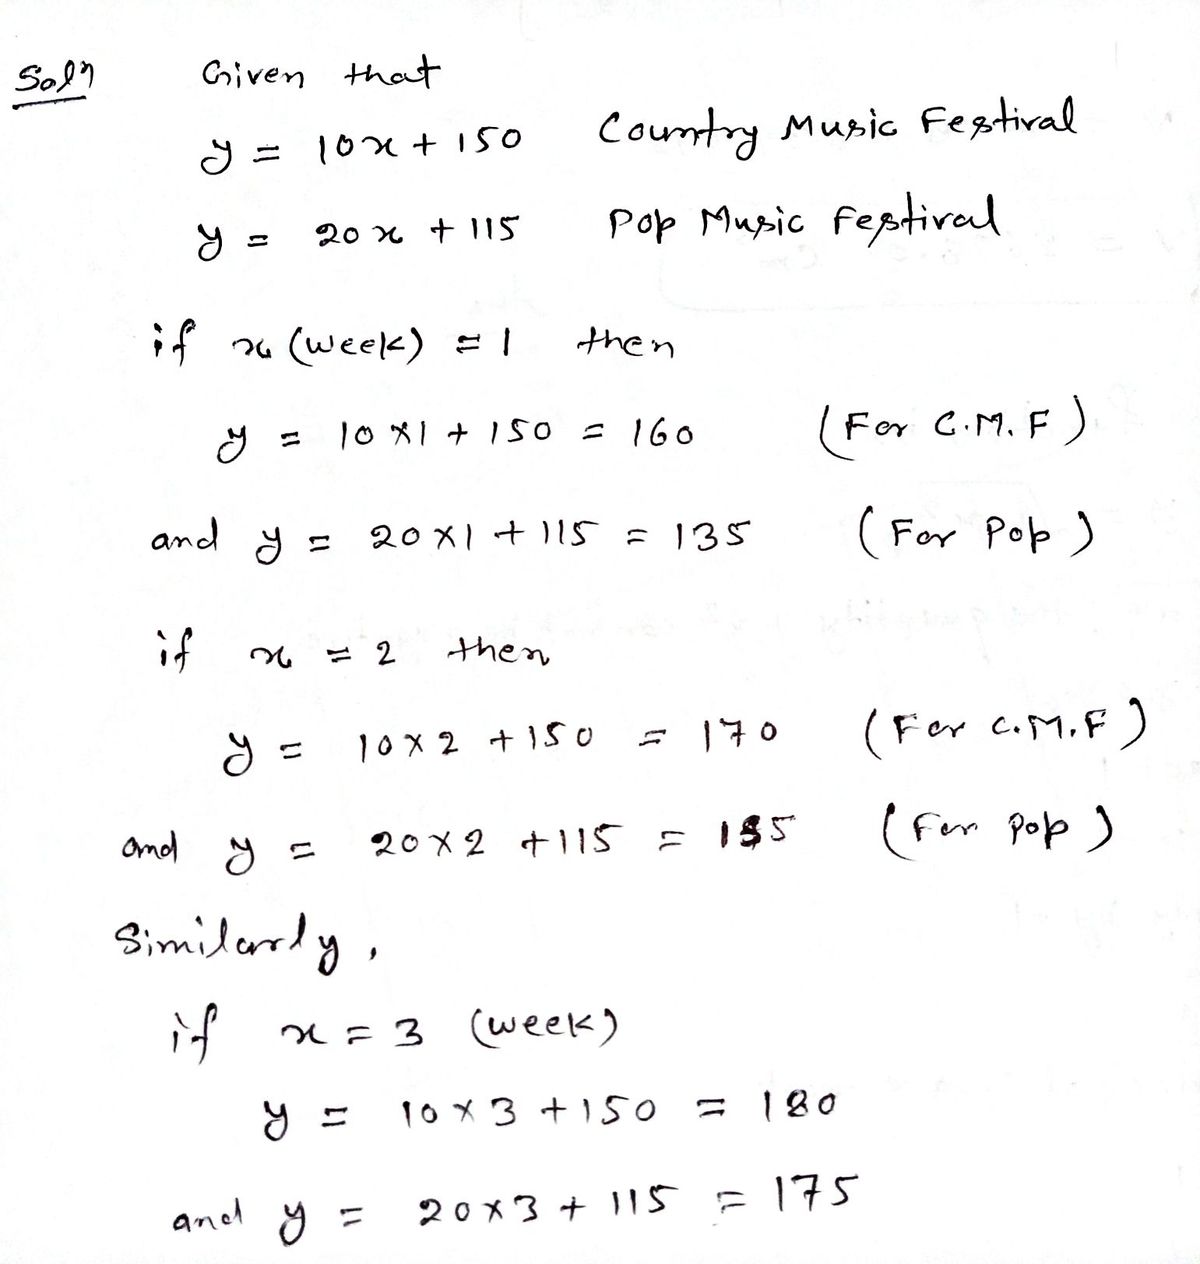 Soln Given that
y = 10x + 150 Country Music Festival
y = 20x + 115 Pop Music Festival
if x (week) = 1 then
y = 10 × 1 + 150 = 160 (For C.M.F).
and y = 20 × 1 + 115 = 135 (For Pop)
if x = 2 then
y = 10 × 2 + 150 = 170 (For C.M.F)
and y = 20 × 2 + 115 = 155 (For Pop)
Similarly,
if x = 3 (week)
y = 10 × 3 + 150 = 180
and y = 20 × 3 + 115 = 175